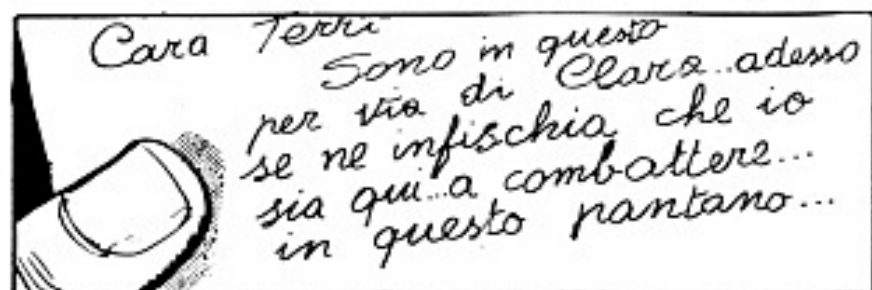 Cara Terri
Sono in questo
per via di Clara..adesso
se ne infischia che io
sia qui..a combattere...
in questo pantano...